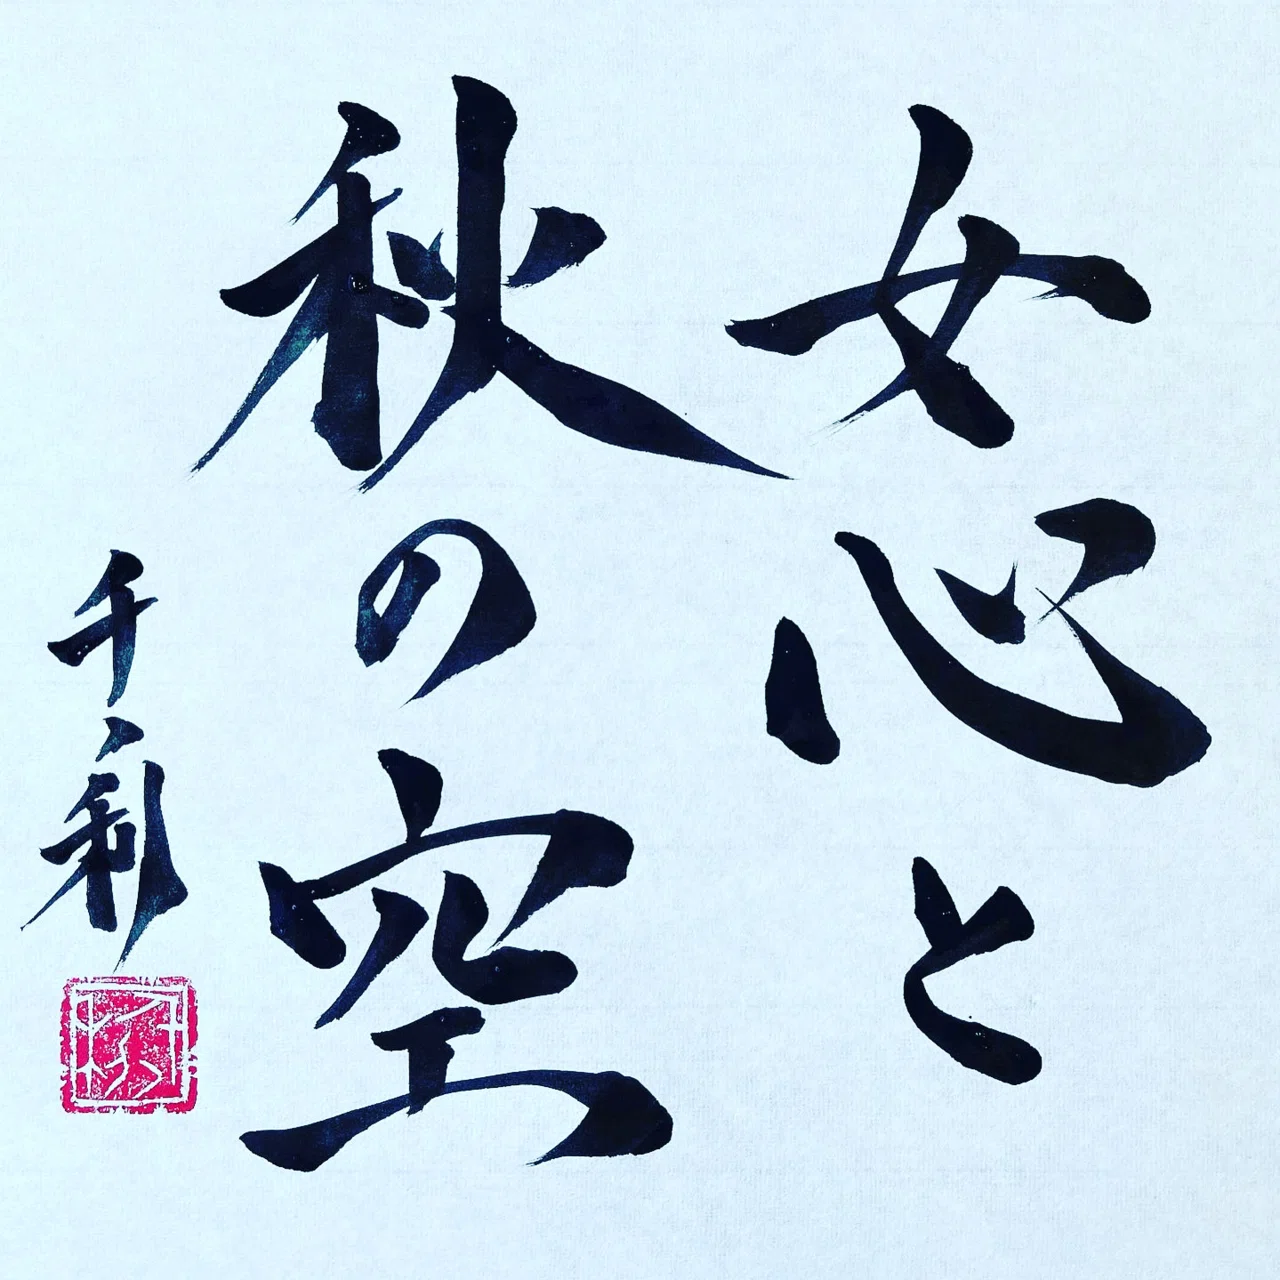 女心と
秋の空
千利